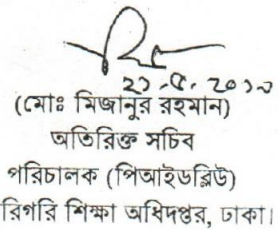 (মোঃ মিজানুর রহমান)
অতিরিক্ত সচিব
পরিচালক (পিআইডব্লিউ)
রিগরি শিক্ষা অধিদপ্তর, ঢাকা।